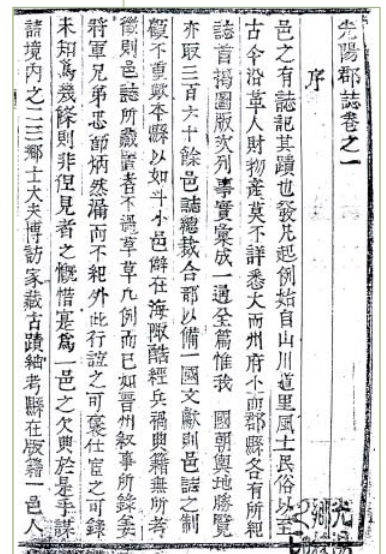 光陽郡誌卷之一
序
邑之有誌記其蹟也發凡起例始自山川道里風土民俗以至
古今沿革人財物産莫不詳悉大而州府小而郡縣各有所紀
誌首揭圖版次列事實彙成一通全篇惟我 國朝輿地勝覽
亦取三百六十餘邑誌總裁合部以備一國文獻則邑誌之制
顧不重歟本縣以如斗小邑僻在海陬酷經兵禍典籍無所考
徵則邑誌所藏置者不過草草凡例而已如晋州叙事所錄姜
將軍兄弟忠節炳然漏而不紀外此行誼之可褒仕宦之可錄
未知爲幾條則非但見者之慨惜寔爲一邑之欠典於是乎謀
諸境內之二三鄕士大夫博訪家藏古蹟紬考縣在版籍一邑人